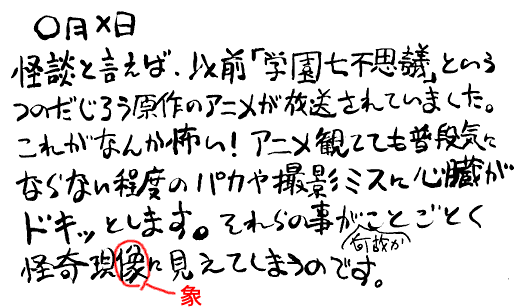 〇月×日
怪談と言えば、以前「学園七不思議」という
つのだじろう原作のアニメが放送されていました。
これがなんか怖い!アニメ観てても普段気に
ならない程度のパカや撮影ミスに心臓が
ドキッとします。それらの事がことごとく
何故か
怪奇現像に見えてしまうのです。
象